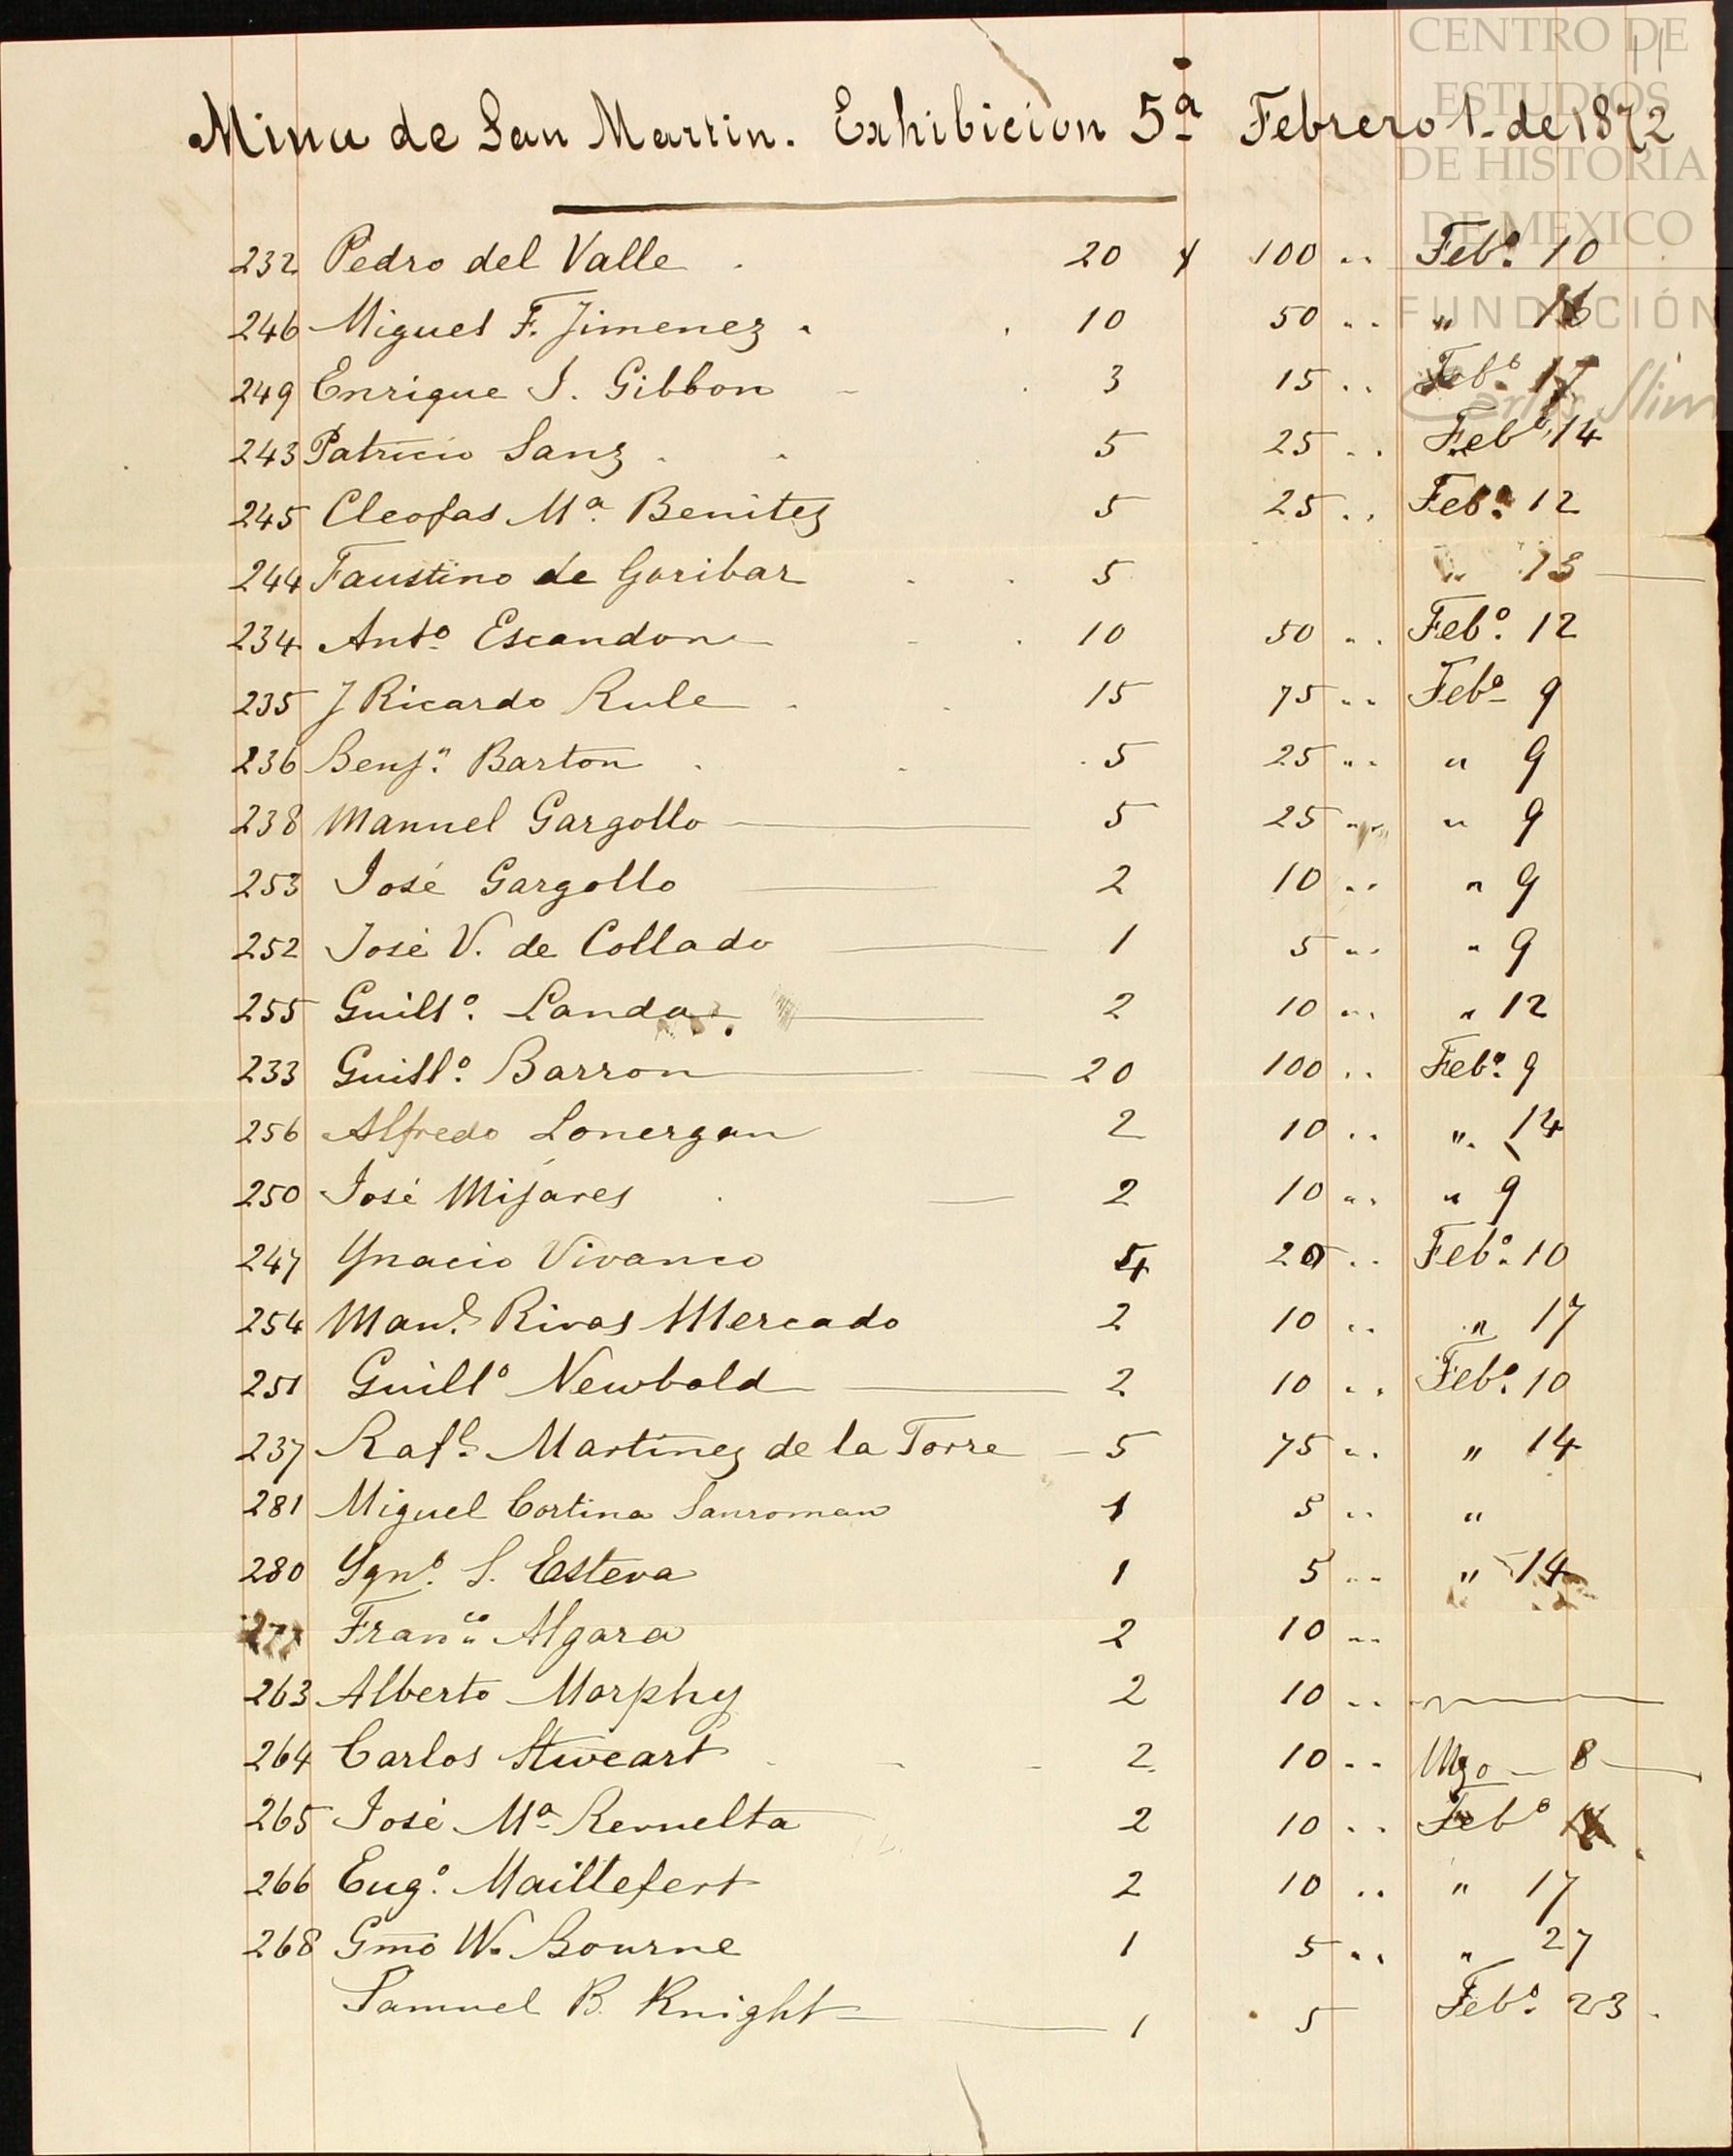 11
CENTRO DE
ESTUDIOS
DE HISTORIA
DE MEXICO
FUNDACIÓN
Carlos Slim
Mina de San Martin. Exhibicion 5ª Febrero 1. de 1872
232 Pedro del Valle 20 $ 100 .. Febº. 10
246 Miguel F. Jimenez 10 50 .. " 16
249 Enrique I. Gibbon 3 15 .. Febº 17
243 Patricio Sanz 5 25 .. Febº 14
245 Cleofas Mª. Benitez 5 25 .. Febº. 12
244 Faustino de Goribar 5 " 13
234 Antº. Escandon 10 50 .. Febº. 12
235 J Ricardo Rule 15 75 .. Febº 9
236 Benjⁿ. Barton 5 25 .. " 9
238 Manuel Gargollo 5 25 .. " 9
253 José Gargollo 2 10 .. " 9
252 José V. de Collado 1 5 .. " 9
255 Guillº. Landa. 2 10 .. " 12
233 Guillº. Barron 20 100 .. Febº. 9
256 Alfredo Lonergan 2 10 .. " 14
250 José Mijares 2 10 .. " 9
247 Ynacio Vivanco 4 20 .. Febº. 10
254 Manˡ. Rivas Mercado 2 10 .. " 17
251 Guillº Newbold 2 10 .. Febº. 10
237 Rafˡ. Martinez de la Torre 5 75 .. " 14
281 Miguel Cortina Sanroman 1 5 .. "
280 Ygnº. S. Esteva 1 5 .. " 14
277 Franᶜᵒ Algara 2 10 ..
263 Alberto Morphy 2 10 ..
264 Carlos Stweart 2 10 .. Mzo 8
265 José Mª Revuelta 2 10 .. Febº
266 Eugº. Maillefert 2 10 .. " 17
268 Gmo W. Bourne 1 5 .. " 27
Samuel B. Knight 1 5 Febº. 23.